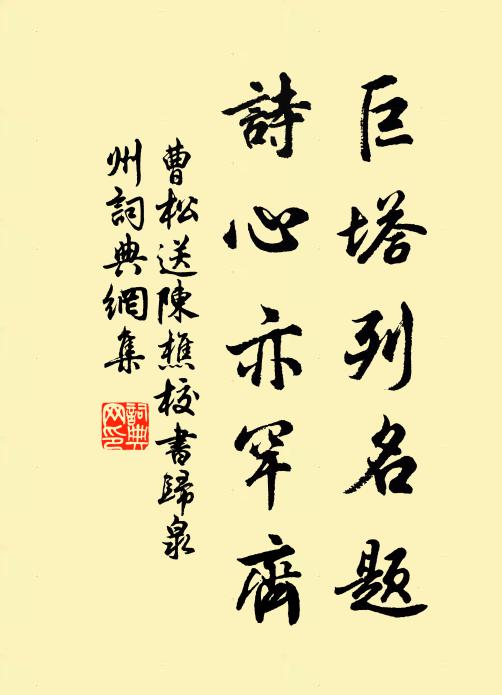 巨塔列名題
詩心亦罕齊
曹松送陳樵校書歸泉
州詞典網集
詞典
网印